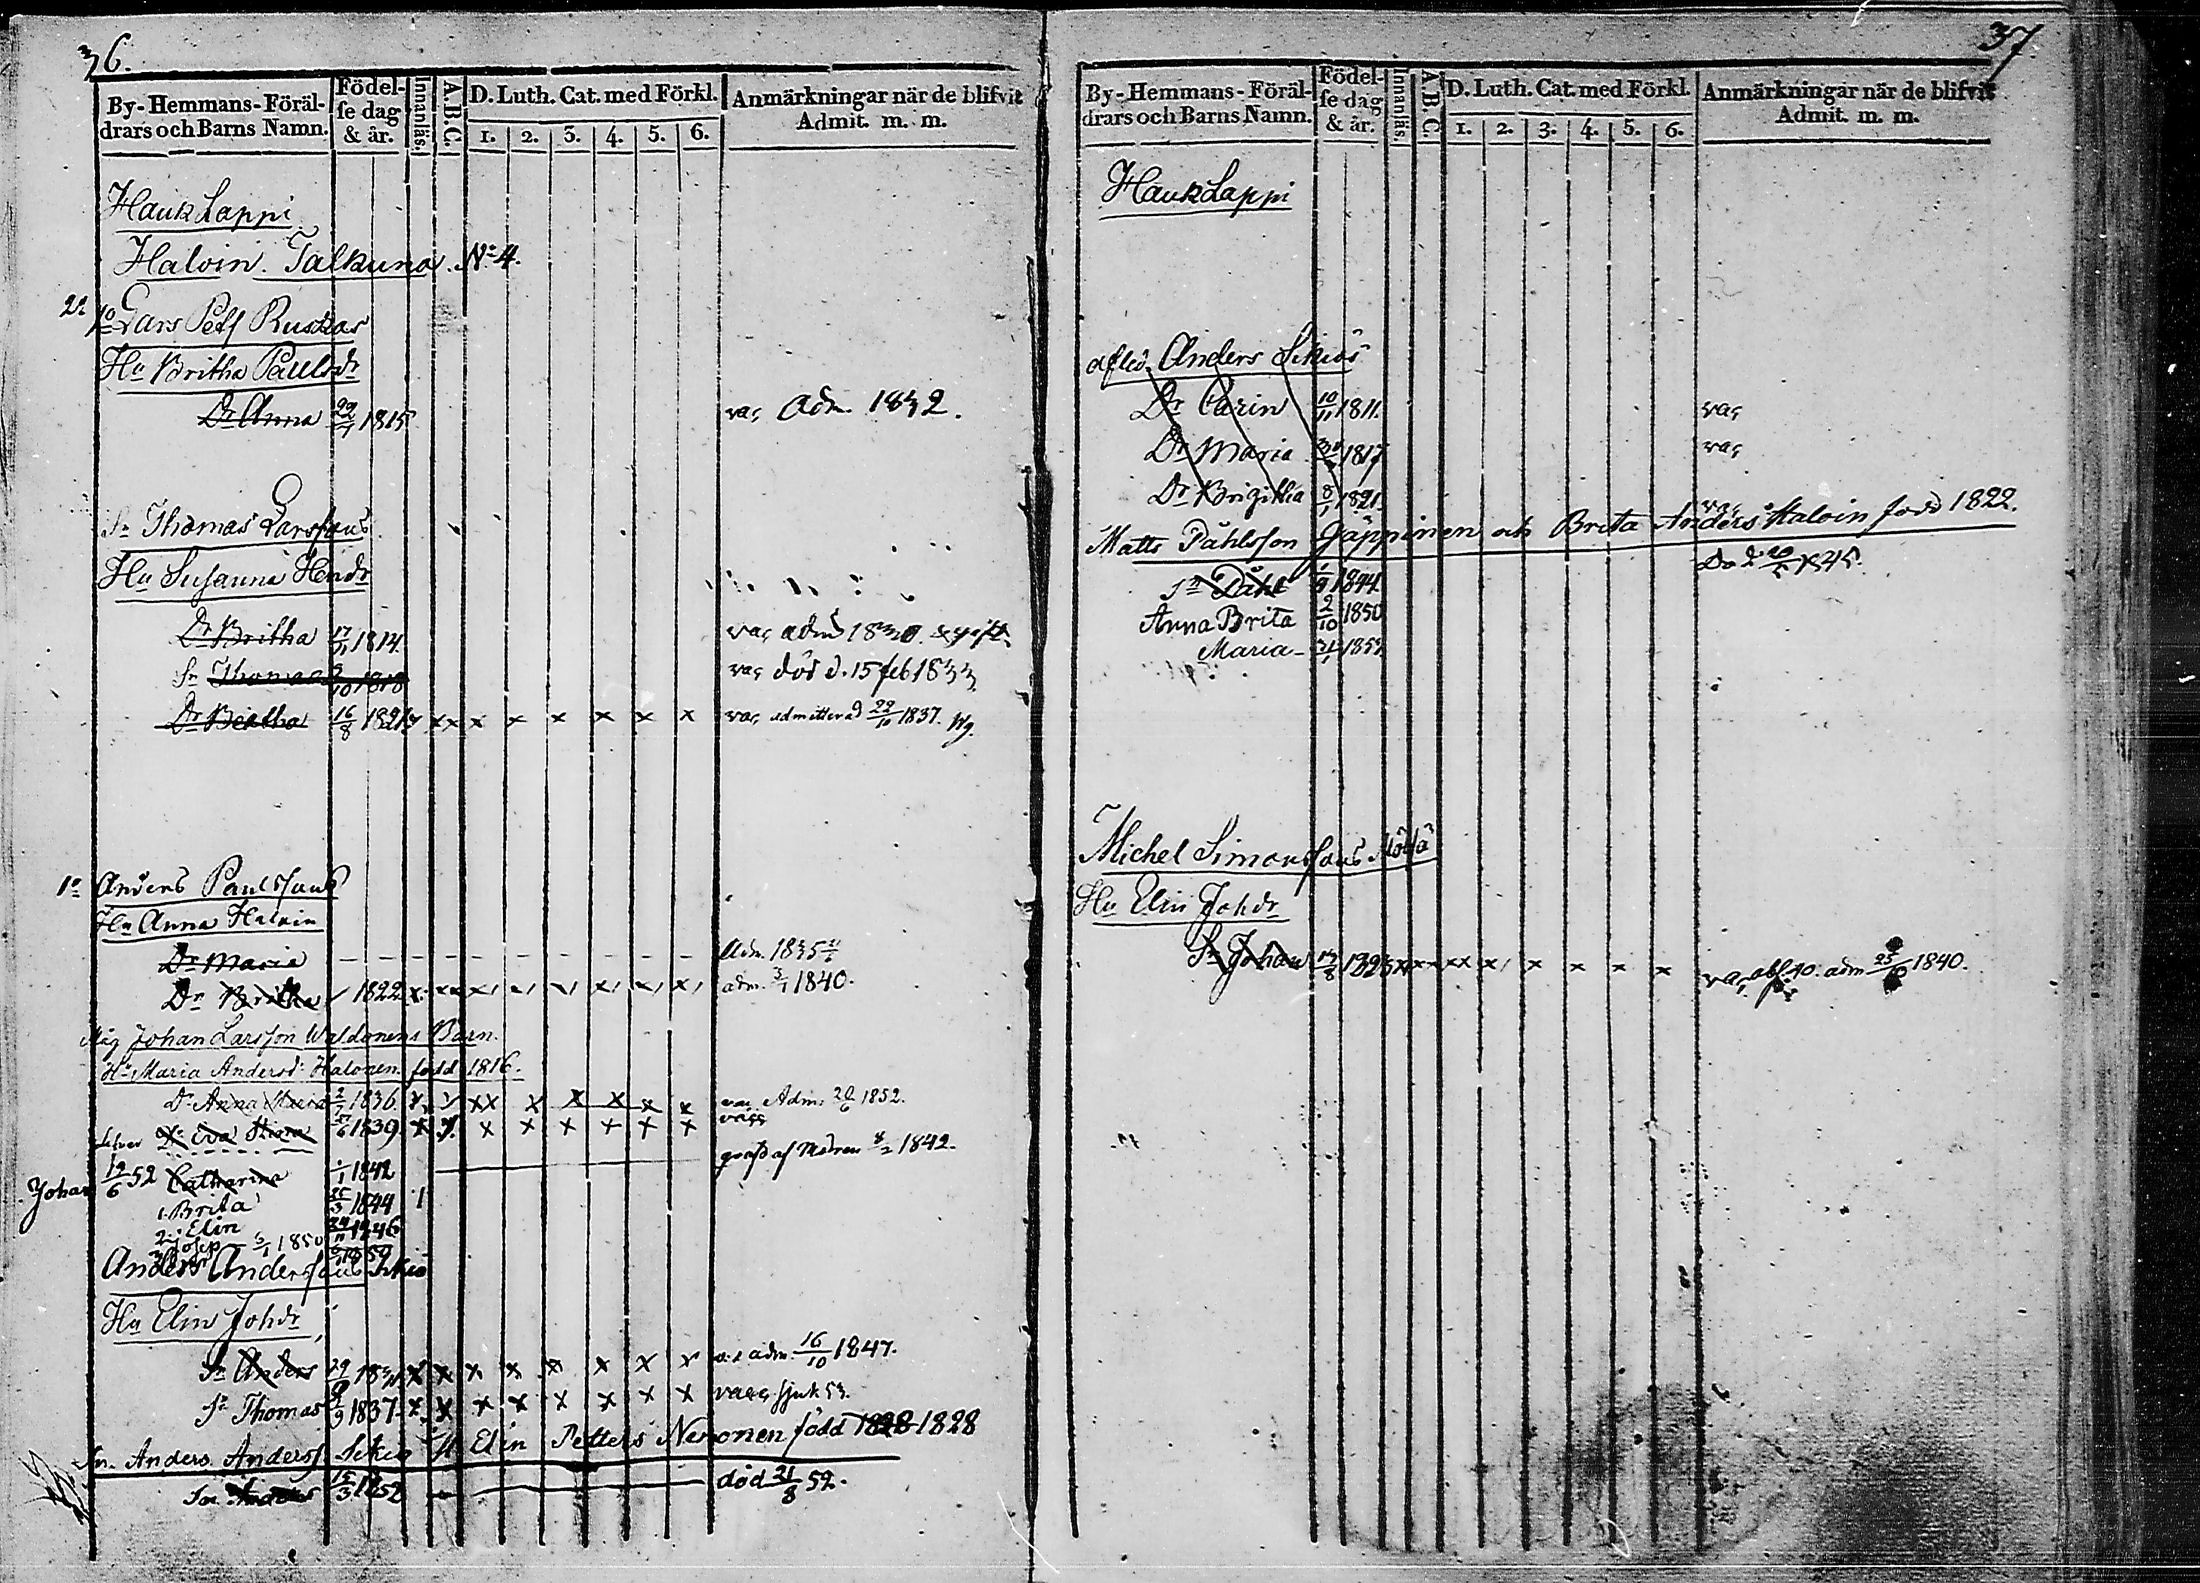 36.
By- Hemmans- Föräl-
drars och Barns Namn.
Födel-
se dag
& år.
Innanläs.
A.B.C.
D. Luth. Cat. med Förkl.
1. 2. 3. 4. 5. 6.
Anmärkningar när de blifvit
Admit. m. m.
HaukLappi
Haloin. Talkuna. No 4.
Lars Pets Ruskas
Hu Britha Paulsdr
Dr Anna 29/7 1815 vac Adm. 1832.
Sn Thomas Larssons
Hu Susanna Hendr
Dr Britha 17/11 1814 vac adm 1830. & gift
Sn Thomas 9/10 1818 vac död d. 15 feb 1833
Dr Beatha 16/8 1821 x xx x x x x x x vac admitterad 22/10 1837.
1o Anders Paulssons
Hu Anna Haloin
Dr Maria Adm. 1835
Dr Britha 1822 adm. 3/1 1840.
Måg Johan Larsson Waldonens Barn.
Hu Maria Andersd. Halonen. född 1816.
Dr Anna Maria 2/7 1836 x x x x x x x Adm: 20/6 1852.
Dr Eva Stiina 1839 x x x x x x x
Catharina 1/1 1842 af Modren 8/2 1842.
Johan 19/6 52
1. Brita 1844
2. Elin 1846
Josep 1850
Anders Anderssons Sikiö
Hu Elin Johdr
Sn Anders 29/ x x x x x x x adm. 16/10 1847.
Sn Thomas 9/9 1837 x x x x x x x x sjuk 53.
Sn. Anders Anderss. Sikiö H. Elin Petters Neronen född 1828 1828
Sn Anders 15/3 1852 död 21/8 52.
37
By- Hemmans- Föräl-
drars och Barns Namn.
Födel-
se dag
& år.
Innanläs.
A.B.C.
D. Luth. Cat. med Förkl.
1. 2. 3. 4. 5. 6.
Anmärkningar när de blifvit
Admit. m. m.
HaukLappi
afled. Anders Sikiös
Dr Carin 10/11 1811. vac
Dr Maria 1817 vac
Dr Brigitha 8/1 1821. vac
Matts Påhlsson Jäppinen och Brita Anders Haloin född 1822.
Sn Påhl 1/9 1844 1845.
Anna Brita 2/10 1850
Maria
Michel Simonssons
Hu Elin Johdr
Sn Johan x x x x x x x vac adm 25/10 1840.